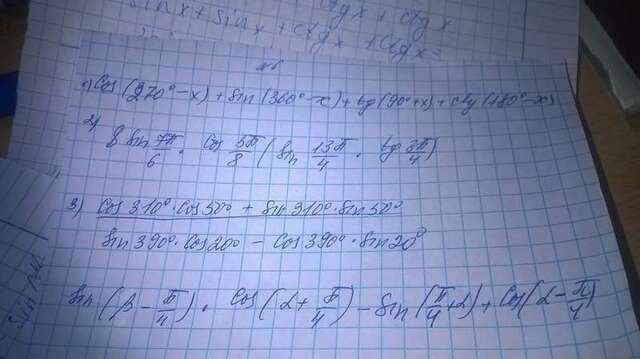 sin x + sin x + ctg x + ctg x
№6
1) cos(270° - x) + sin(360° - x) + tg(90° + x) + ctg(180° - x)
2) 8 sin 7π/6 · cos 5π/8 (sin 13π/4 · tg 3π/4)
3) cos 310° · cos 50° + sin 310° · sin 50°
sin 390° · cos 20° - cos 390° · sin 20°
sin (β - π/4) · cos (α + π/4) - sin (π/4 + α) + cos (α - π/4)